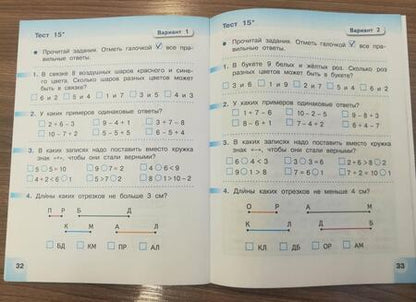 Тест 15*
Вариант 1
Прочитай задания. Отметь галочкой все пра-
вильные ответы.
1. В связке 8 воздушных шаров красного и сине-
го цвета. Сколько шаров разных цветов может
быть в связке?
6 и 2 5 и 4 1 и 7 3 и 5 4 и 3
2. У каких примеров одинаковые ответы?
2 + 6 – 3 9 – 4 + 1 3 + 7 – 8
10 – 7 + 2 5 – 5 + 5 6 – 5 + 4
3. В каких записях надо поставить вместо кружка
знак «+», чтобы они стали верными?
5 ○ 5 = 10 9 ○ 7 = 2 4 ○ 6 < 9
4 + 2 < 6 ○ 1 5 > 7 ○ 2 8 ○ 1 > 10 – 2
4. Длины каких отрезков не больше 3 см?
П Р Б Д
К М А Л
БД КМ ПР АЛ
32
Тест 15*
Вариант 2
Прочитай задания. Отметь галочкой все пра-
вильные ответы.
1. В букете 9 белых и жёлтых роз. Сколько роз
разных цветов может быть в букете?
3 и 6 1 и 9 2 и 7 5 и 4 6 и 2
2. У каких примеров одинаковые ответы?
1 + 7 – 6 10 – 2 – 5 9 – 8 + 3
8 – 6 + 1 7 – 4 + 2 6 + 4 – 7
3. В каких записях надо поставить вместо кружка
знак «+», чтобы они стали верными?
6 ○ 4 < 3 3 ○ 3 = 6 2 + 6 > 8 ○ 2
9 ○ 1 > 8 7 = 6 ○ 1 7 + 2 < 10 ○ 1
4. Длины каких отрезков не меньше 4 см?
О Р А М
К Л Д Б
КЛ ДБ ОР АМ
33